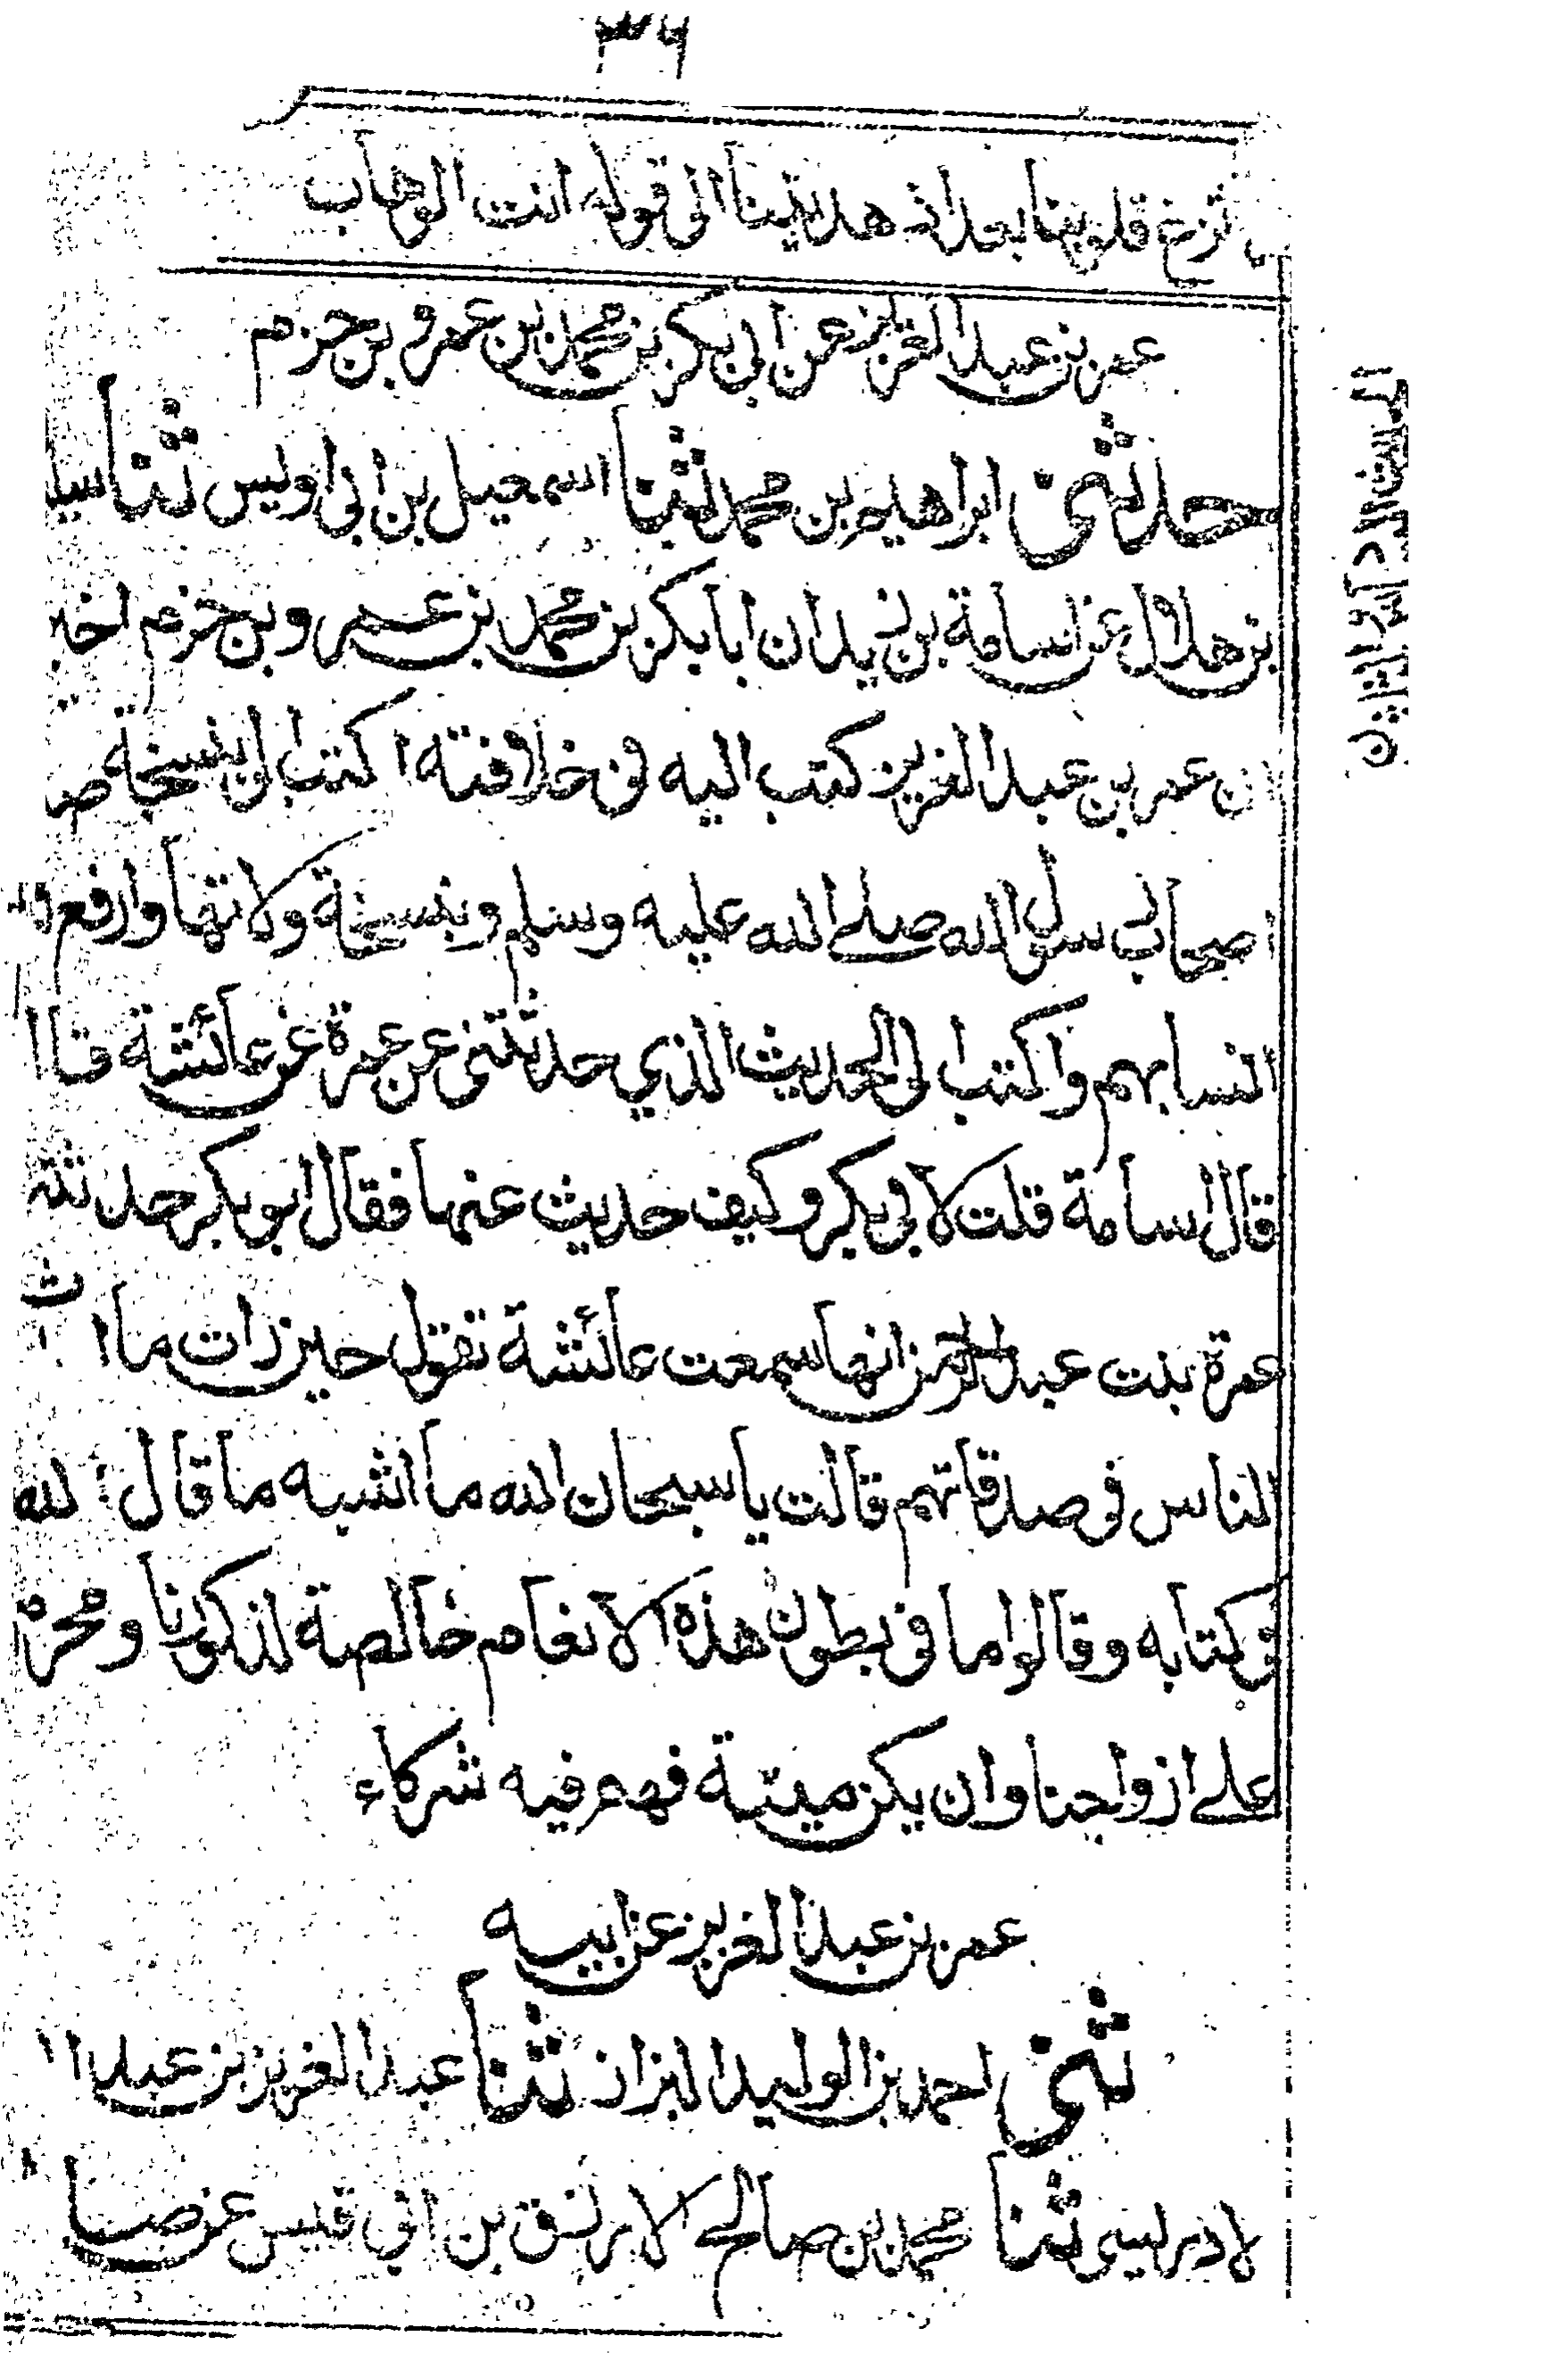 ٣٦
تزغ قلوبنا بعد اذ هديتنا الى قوله انت الوهاب
عمر بن عبد العزيز عن ابي بكر بن محمد بن عمرو بن حزم
حدثني ابراهيم بن محمد ثنا اسمعيل بن ابي اويس ثنا
بن هلال عن اسامة بن زيد ان ابا بكر بن محمد بن عمرو بن حزم
ان عمر بن عبد العزيز كتب اليه في خلافته اكتب لي بنسخة
اصحاب رسول الله صلے الله عليه وسلم وبنسخة ولاتها وارفع
انسابهم واكتب لي الحديث الذي حدثتني عن عمرة عن عائشة
قال اسامة قلت لابي بكر وكيف حديث عنها فقال ابو بكر حدثتني
عمرة بنت عبد الرحمن انها سمعت عائشة تقول حين رات ما
الناس في صدقاتهم قالت يا سبحان الله ما اشبه ما قال الله
في كتابه وقالوا ما في بطون هذه الانعام خالصة لذكورنا ومحرم
علے ازواجنا وان يكن ميتة فهم فيه شركاء
عمر بن عبد العزيز عن ابيه
ثنى احمد بن الوليد البزاز ثنا عبد العزيز بن عبد
لادريسى ثنا محمد بن صالح الازرق بن ابي قيس عن